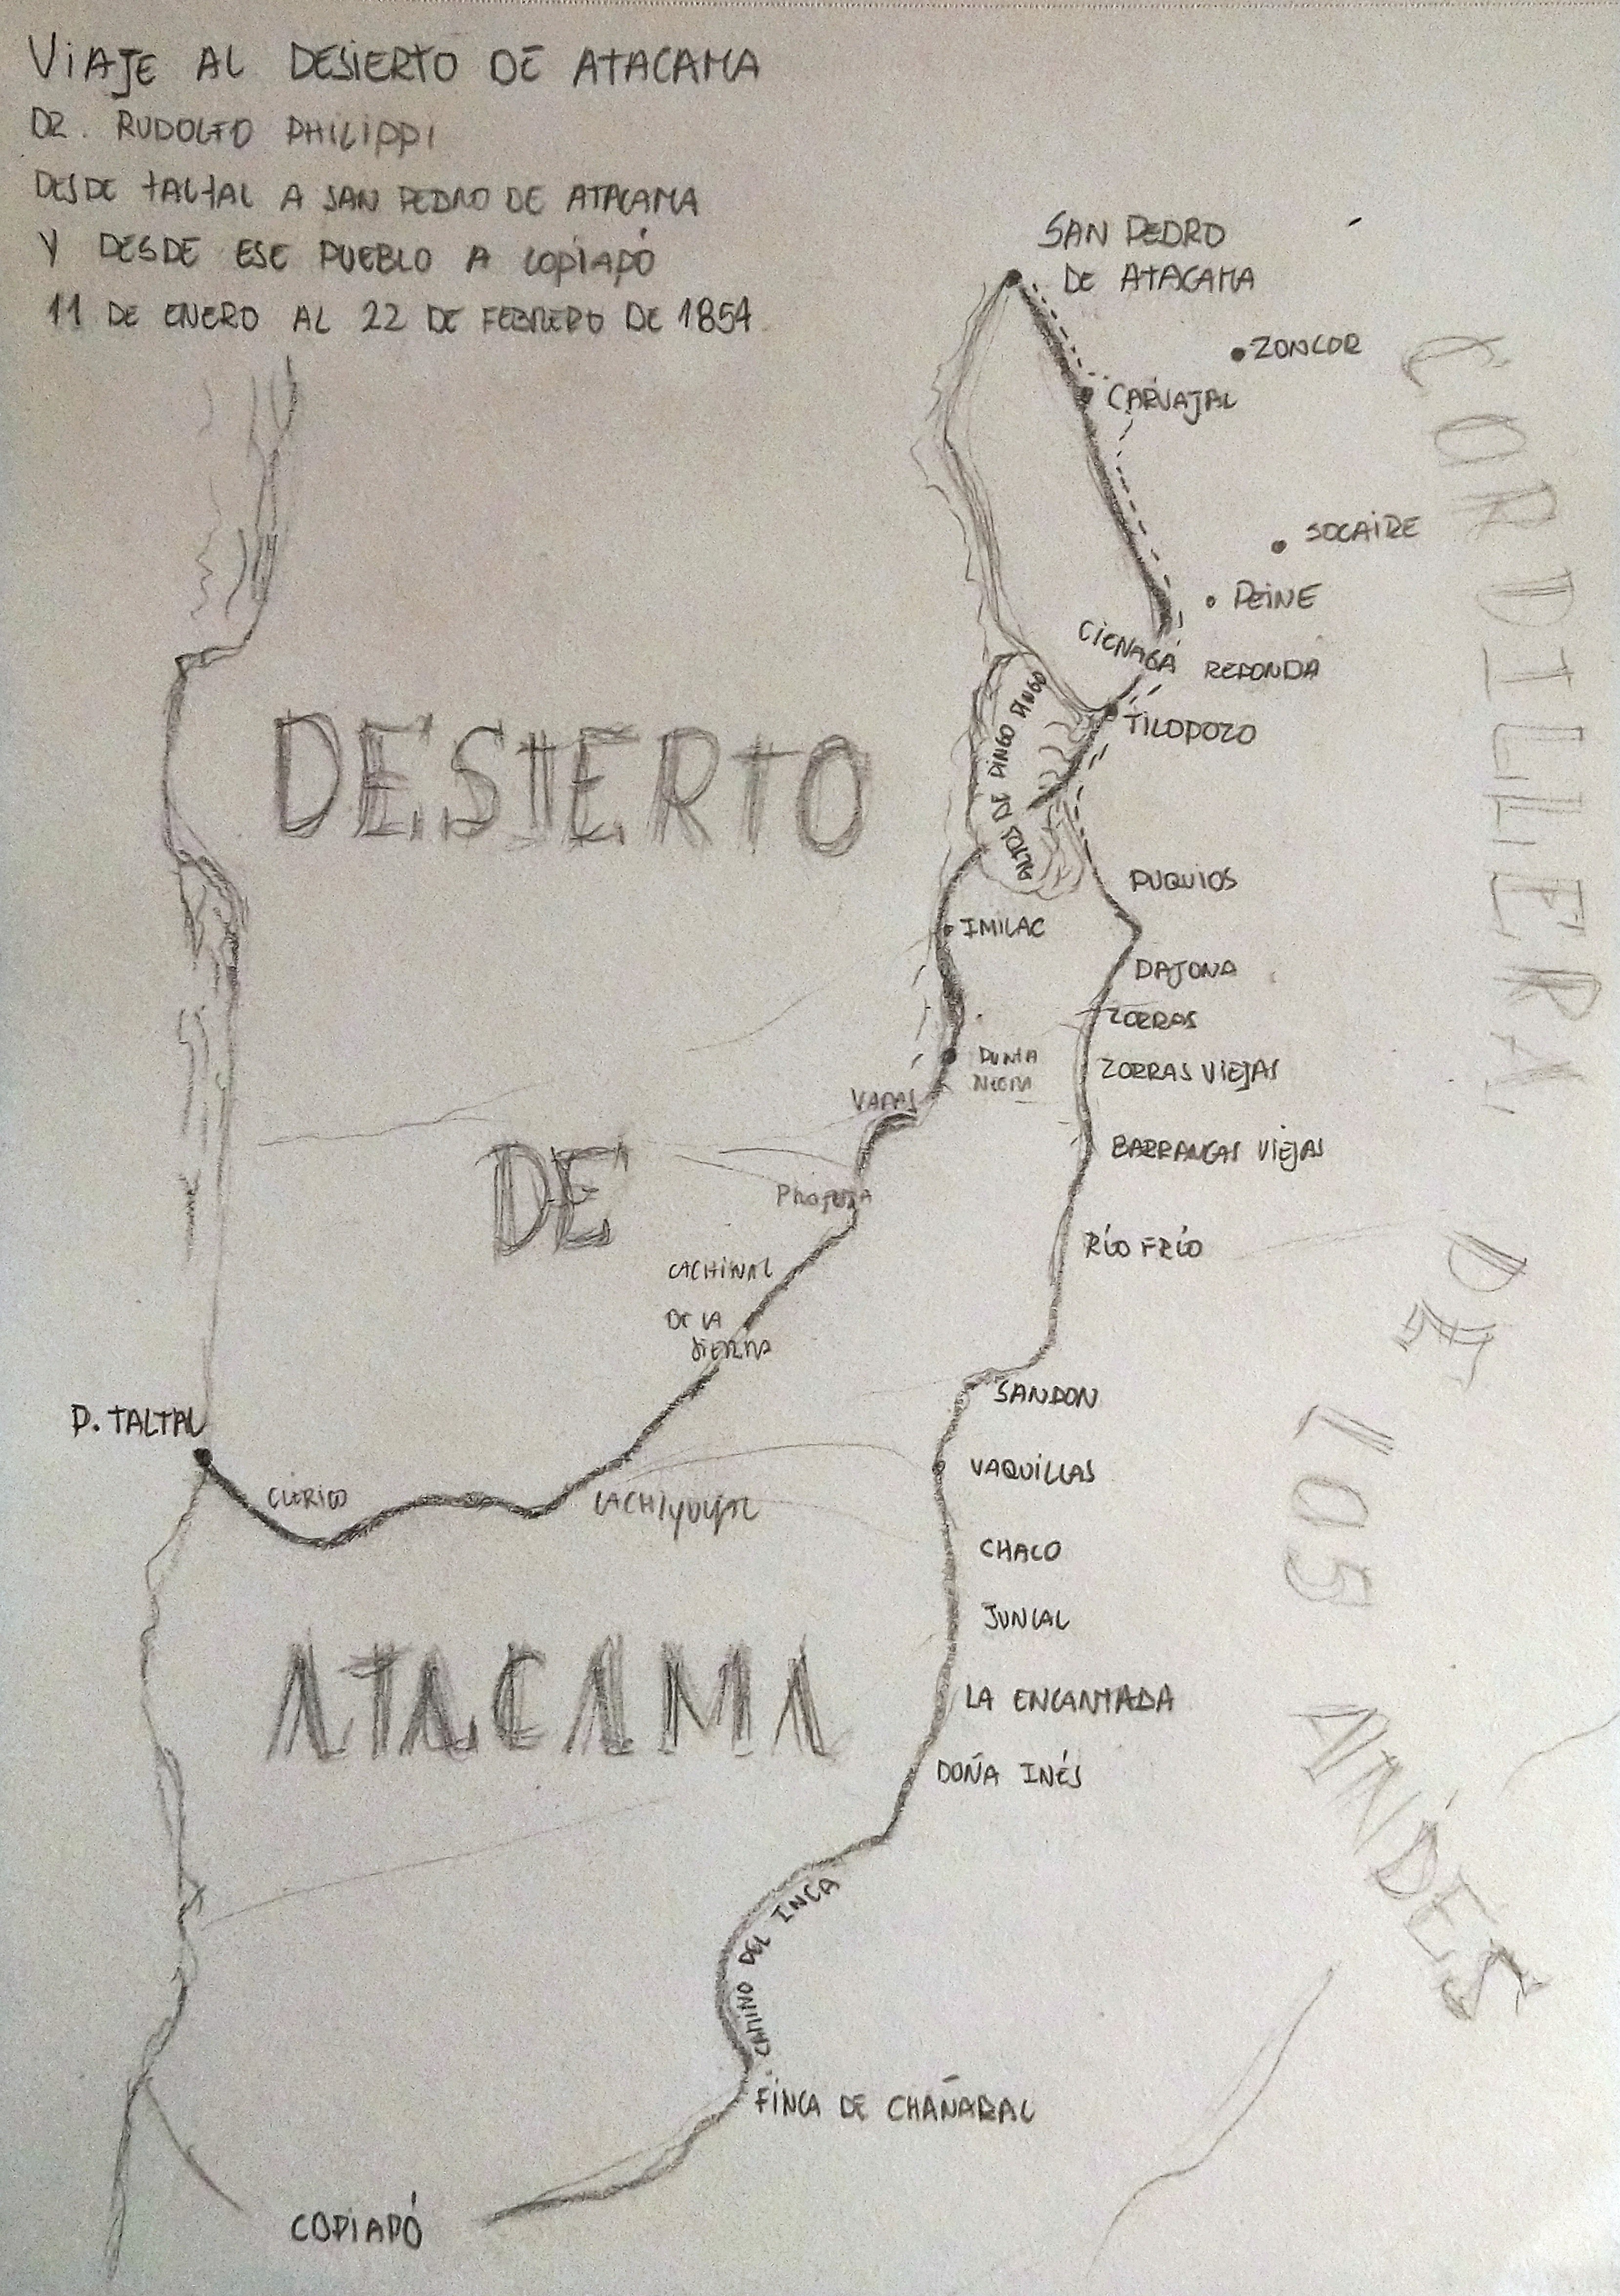 VIAJE AL DESIERTO DE ATACAMA
DR. RUDOLFO PHILIPPI
DESDE TALTAL A SAN PEDRO DE ATACAMA
Y DESDE ESE PUEBLO A COPIAPÓ
11 DE ENERO AL 22 DE FEBRERO DE 1854
SAN PEDRO
DE ATACAMA
ZONCOR
CARVAJAL
SOCAIRE
PEINE
CIENAGA REDONDA
TILOPOZO
ALTOS DE PINGO PINGO
PUQUIOS
IMILAC
PAJONA
ZORRAS
PUNTA
NEGRA
ZORRAS VIEJAS
VARAS
BARRANCAS VIEJAS
PROFETA
RÍO FRÍO
CACHINAL
DE LA
SIERRA
SANDON
P. TALTAL
VAQUILLAS
CLERICO
CACHIYUYAL
CHACO
JUNCAL
LA ENCANTADA
DOÑA INÉS
CAMINO DEL INCA
FINCA DE CHAÑARAL
COPIAPÓ
DESIERTO
DE
ATACAMA
CORDILLERA DE LOS ANDES